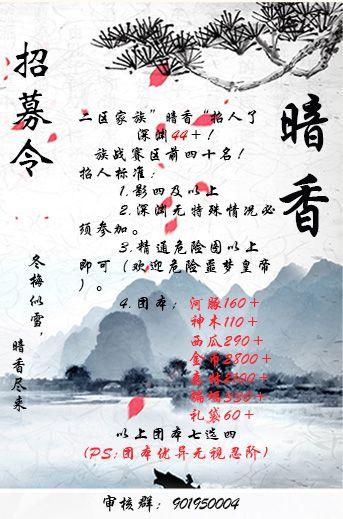 招募令
暗香
二区家族”暗香“招人了
深渊44+！
族战赛区前四十名！
招人标准：
1.影四及以上
2.深渊无特殊情况必
须参加。
3.精通危险图以上
即可（欢迎危险噩梦皇帝
）。
4.团本：河豚160+
神木110+
西瓜290+
金币2800+
2100+
蝙蝠350+
礼袋60+
以上团本七选四
(PS:团本优异无视忍阶)
冬梅似雪，
暗香尽来
审核群：901950004